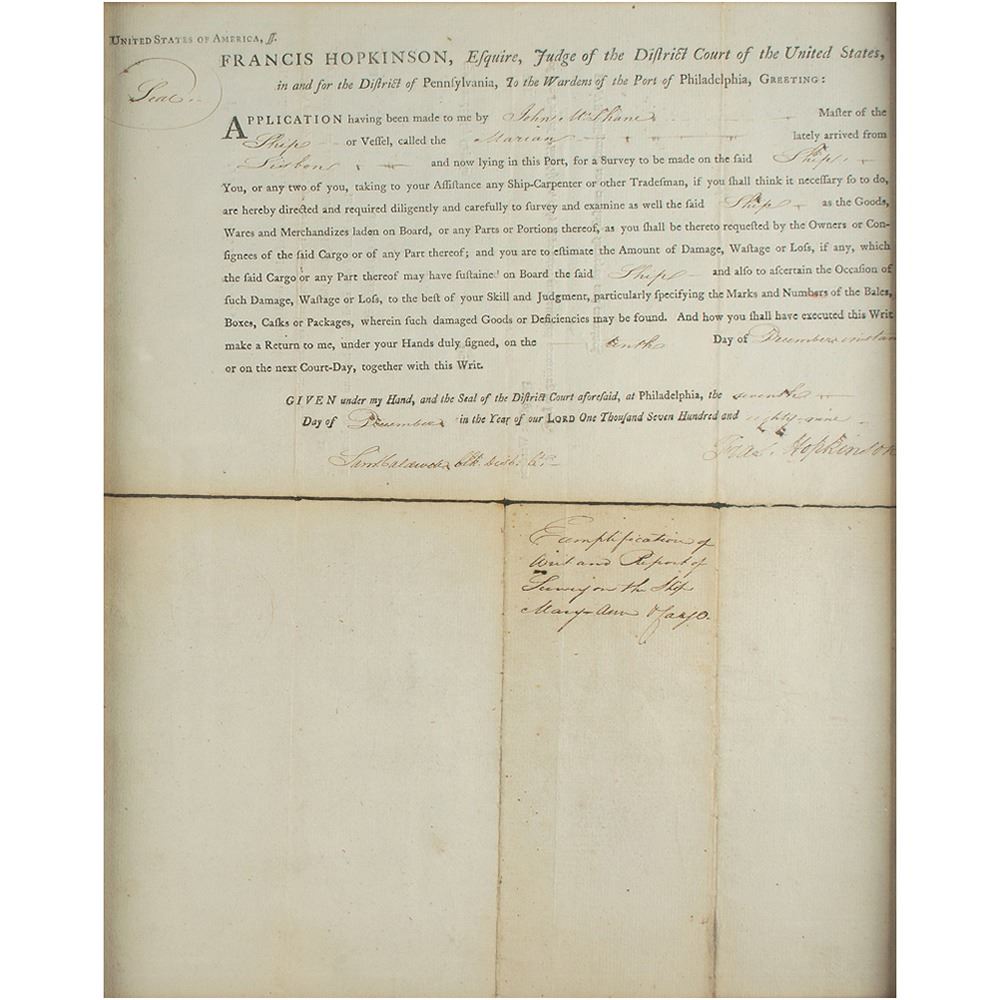 UNITED STATES OF AMERICA, ſſ.
Seal
FRANCIS HOPKINSON, Eſquire, Judge of the Diſtrict Court of the United States,
in and for the Diſtrict of Pennſylvania, To the Wardens of the Port of Philadelphia, GREETING:
APPLICATION having been made to me by John McShane Maſter of the
Ship or Veſſel, called the Marian lately arrived from
Lisbon and now lying in this Port, for a Survey to be made on the ſaid Ship
You, or any two of you, taking to your Aſſiſtance any Ship-Carpenter or other Tradeſman, if you ſhall think it neceſſary ſo to do,
are hereby directed and required diligently and carefully to ſurvey and examine as well the ſaid Ship as the Goods,
Wares and Merchandizes laden on Board, or any Parts or Portions thereof, as you ſhall be thereto requeſted by the Owners or Con-
ſignees of the ſaid Cargo or of any Part thereof; and you are to eſtimate the Amount of Damage, Waſtage or Loſs, if any, which
the ſaid Cargo or any Part thereof may have ſuſtained on Board the ſaid Ship and alſo to aſcertain the Occaſion of
ſuch Damage, Waſtage or Loſs, to the beſt of your Skill and Judgment, particularly ſpecifying the Marks and Numbers of the Bales,
Boxes, Caſks or Packages, wherein ſuch damaged Goods or Deficiencies may be found. And how you ſhall have executed this Writ
make a Return to me, under your Hands duly ſigned, on the tenth Day of December instan
or on the next Court-Day, together with this Writ.
GIVEN under my Hand, and the Seal of the Diſtrict Court aforeſaid, at Philadelphia, the seventh
Day of December in the Year of our LORD One Thouſand Seven Hundred and eighty-nine
Fras. Hopkinson
Sam Caldwell Clk. Dist. Ct.
Exemplification of
Writ and Report of
Survey on the Ship
Mary-Ann & Cargo.